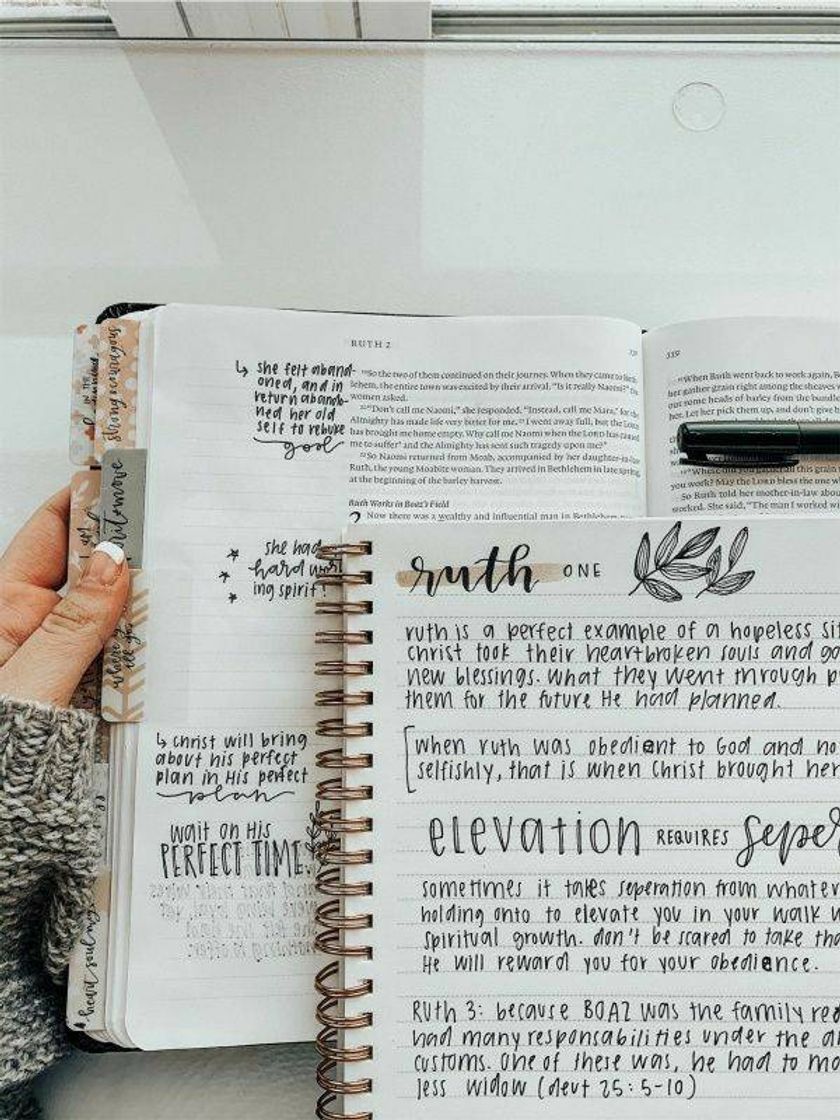 RUTH 2
↳ she felt aband-
oned, and in
return aband-
ned her old
self to rebuke
god
19So the two of them continued on their journey. When they came to
lehem, the entire town was excited by their arrival. "Is it really Naomi?"
women asked.
20"Don't call me Naomi," she responded. "Instead, call me Mara, for the
Almighty has made life very bitter for me. 21I went away full, but the
has brought me home empty. Why call me Naomi when the LORD has caused
me to suffer and the Almighty has sent such tragedy upon me?"
22So Naomi returned from Moab, accompanied by her daughter-in-law
Ruth, the young Moabite woman. They arrived in Bethlehem in late spring,
at the beginning of the barley harvest.
Ruth Works in Boaz's Field
2 Now there was a wealthy and influential man in Bethlehem
she had
hard work
ing spirit!
↳ Christ will bring
about his perfect
plan in His perfect
plan
wait on His
PERFECT TIME
339
15When Ruth went back to work again, B
her gather grain right among the sheaves
out some heads of barley from the bundle
her. Let her pick them up, and don't give
all this grain
you work? May the LORD bless the one
So Ruth told her mother-in-law about
worked. She said, "The man I worked wi
strong & courageous
heart soul
ruth ONE
ruth is a perfect example of a hopeless sit
christ took their heartbroken souls and
new blessings. what they went through
them for the future He had planned.
when ruth was obedient to God and no
selfishly, that is when Christ brought her
elevation REQUIRES seper
sometimes it takes seperation from whatev
holding onto to elevate you in your walk
spiritual growth. don't be scared to take tha
He will reward you for your obedience.
RUTH 3: because BOAZ was the family red
had many responsabilities under the
customs. One of these was, he had to
less widow (deut 25:5-10)